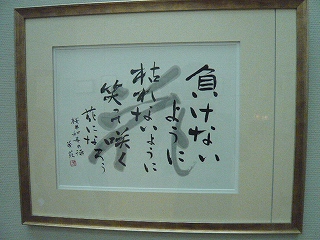 負けない
ように
枯れないように
笑って咲く
花になろう